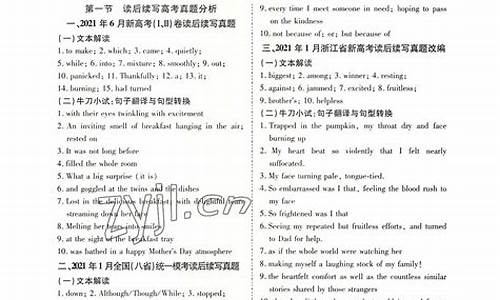 第一节 读后续写高考真题分析
一、2021 年 6 月新高考(I、II)卷读后续写真题
(一)文本解读
1. to make; 2. which; 3. came; 4. quietly;
5. while; 6. into; 7. mixture; 8. smoothly; 9. out;
10. panicked; 11. Thankfully; 12. a; 13. it;
14. burning; 15. had turned
(二)牛刀小试:句子翻译与句型转换
1. with their eyes twinkling with excitement
2. An inviting smell of breakfast hanging in the air;
rested on
3. It was not long before
4. filled the whole room
5. What a big surprise (it is)
6. and goggled at the twins and the dishes
7. Lost in the delicious breakfast, with delightful
streaming down her face
8. Melting her tears into smiles
9. at the sight of the breakfast tray
10. was bathed in a happy Mother's Day atmosphere
二、2021 年 1 月全国(八省)统一模考读后续写真题
(一)文本解读
1. down; 2. Although/Though/While; 3. stopped;
9. every time I meet someone in need; hoping to pass
on the kindness
10. not because of; or; but because of
三、2021 年 1 月浙江省新高考读后续写真题改编
(一)文本解读
1. biggest; 2. among; 3. winner; 4. resting;
5. against; 6. jammed; 7. excited; 8. fruitless;
9. brother's; 10. helpless
(二)牛刀小试:句子翻译与句型转换
1. Trapped in the pumpkin, my throat dry and face
burning up
2. My heart beat so violently that I felt nearly
suffocated.
3. My face turning pale, tongue-tied.
4. So embarrassed was I that, feeling the blood rush to
my face
5. So frightened was I that
6. Seeing my repeated but fruitless efforts, and turned
to Dad for help.
7. as if the whole world were watching her
8. making myself a laughing stock of my family!
9. the heartfelt comfort as well as the countless similar
stories shared by those strangers
zyjl.cn